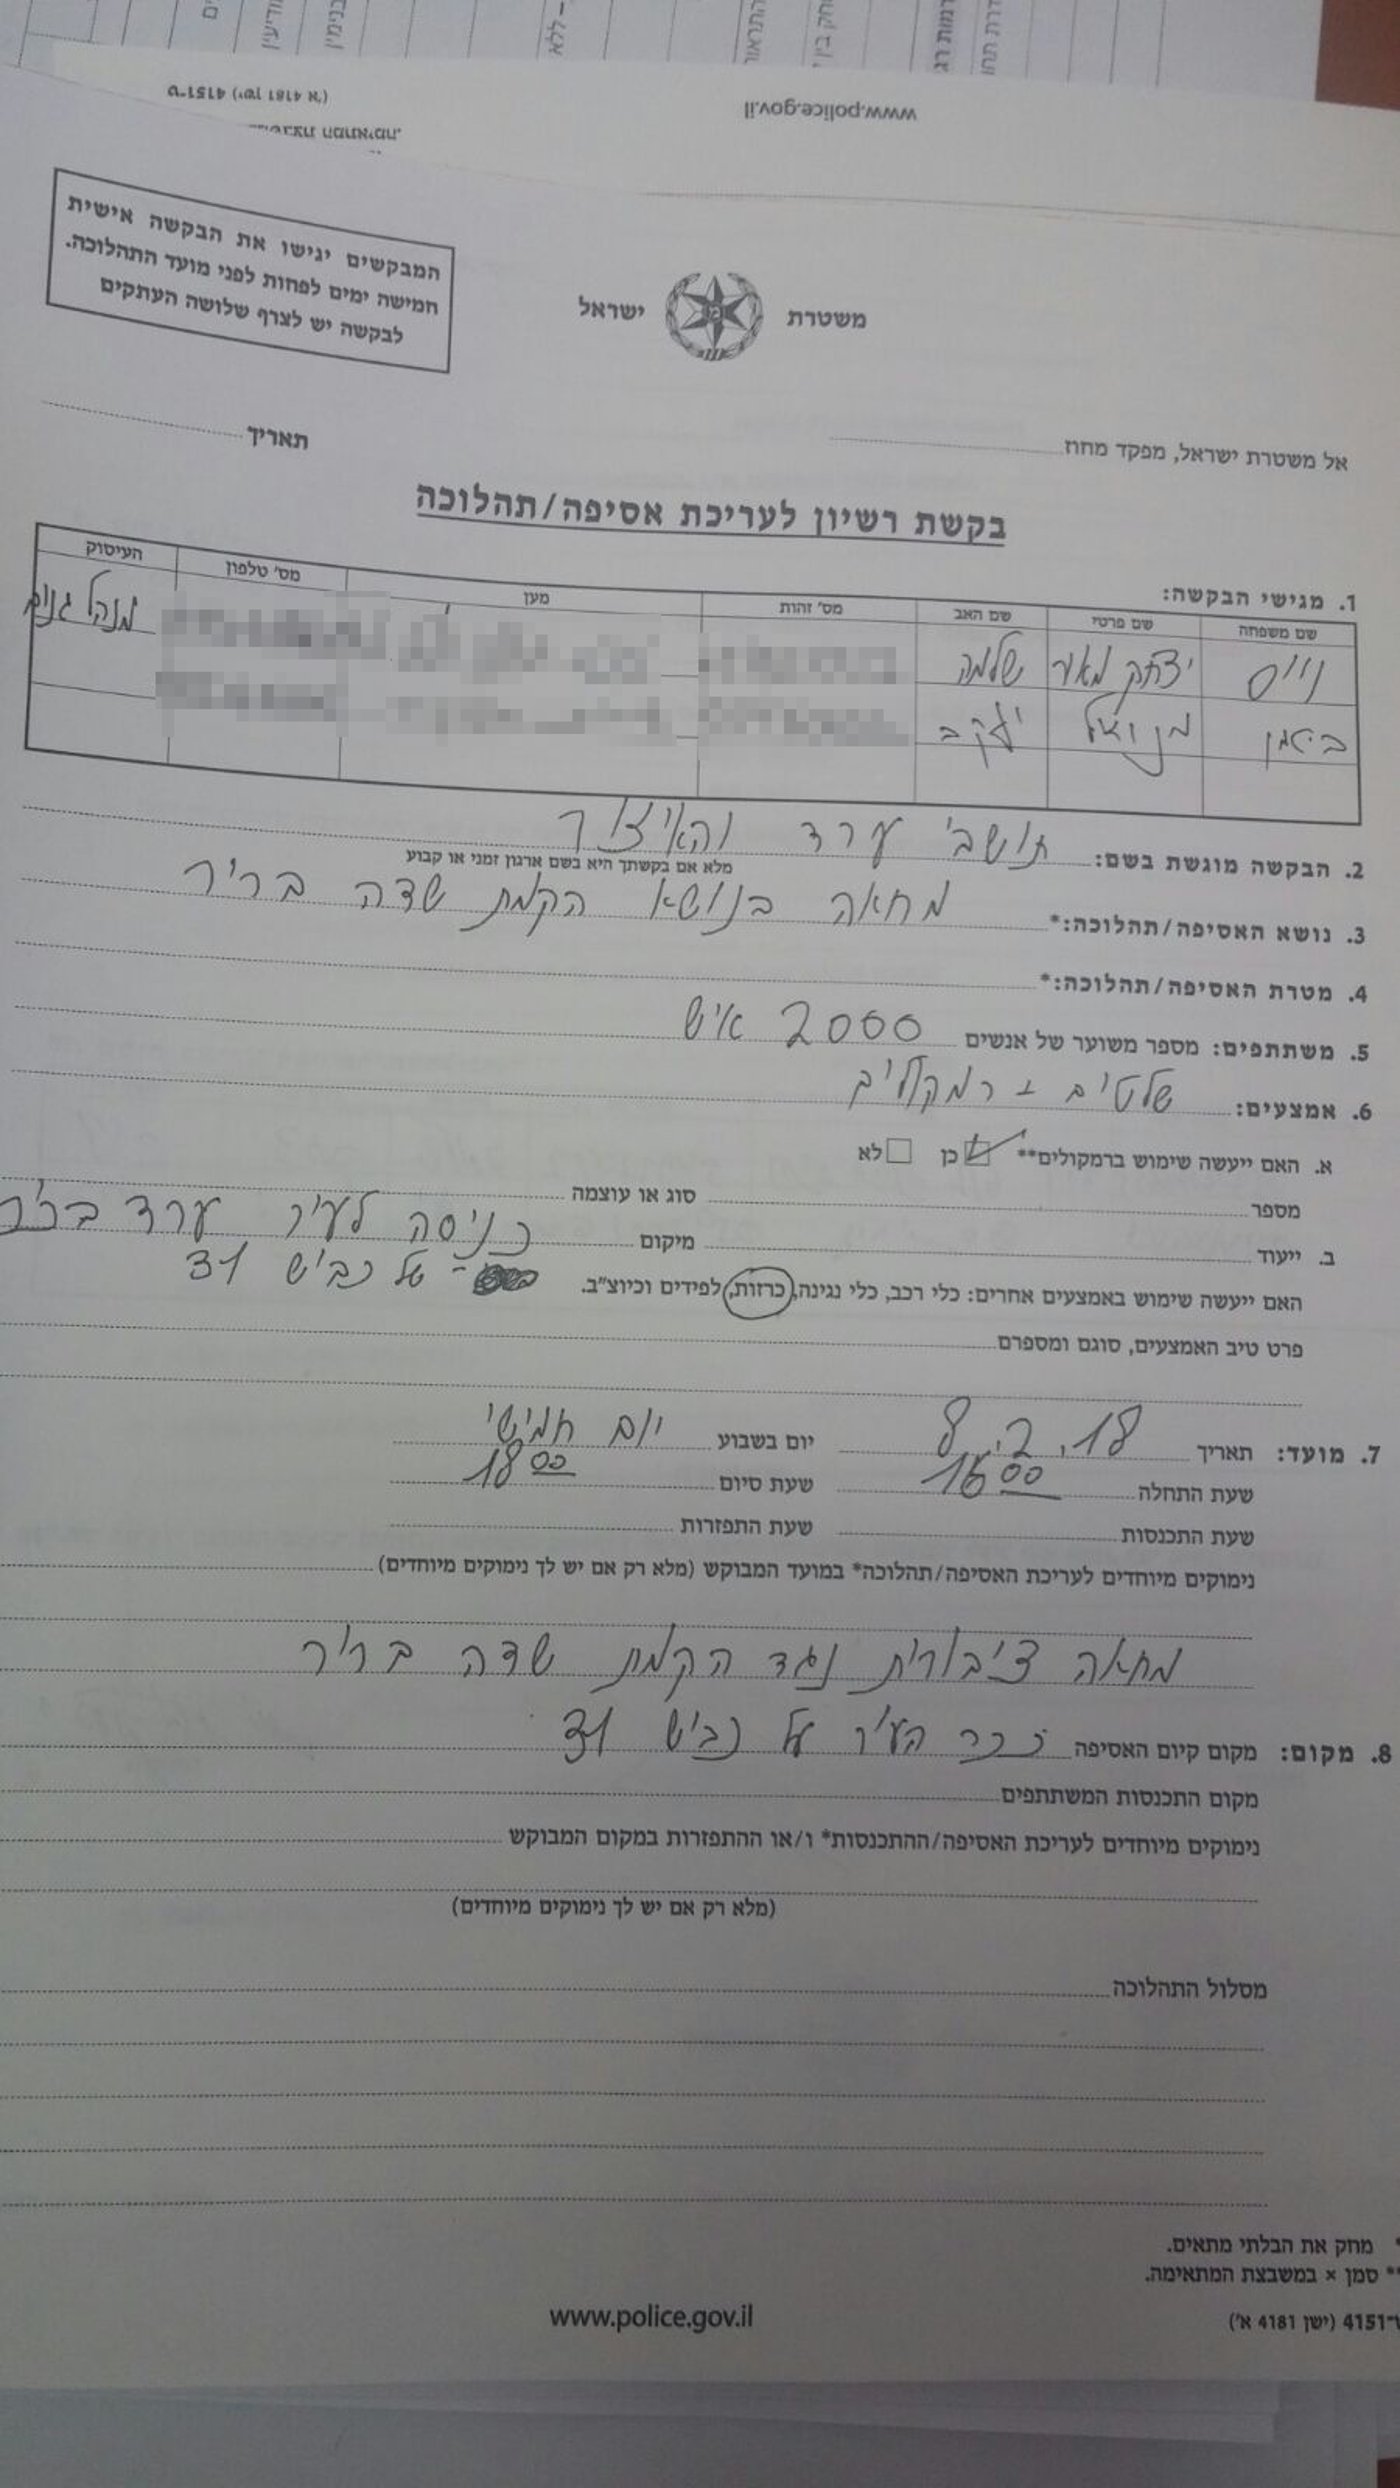 www.police.gov.il
ט-4151 (ישן 4181 א')
המבקשים יגישו את הבקשה אישית
חמישה ימים לפחות לפני מועד התהלוכה.
לבקשה יש לצרף שלושה העתקים
משטרת ישראל
אל משטרת ישראל, מפקד מחוז
תאריך
בקשת רשיון לעריכת אסיפה/תהלוכה
1. מגישי הבקשה:
שם משפחה שם פרטי שם האב מס' זהות מען מס' טלפון העיסוק
וייס יצחק מאיר שלמה מנהל גנים
ביטמן יעקב
2. הבקשה מוגשת בשם: תושבי ערד והאיזור
מלא אם בקשתך היא בשם ארגון זמני או קבוע
3. נושא האסיפה/תהלוכה:* מחאה בנושא הקמת שדה בריר
4. מטרת האסיפה/תהלוכה:*
5. משתתפים: מספר משוער של אנשים 2000 איש
6. אמצעים: שלטים + רמקולים
א. האם ייעשה שימוש ברמקולים** כן לא
מספר סוג או עוצמה
ב. ייעוד מיקום כניסה לעיר ערד בכיכר
האם ייעשה שימוש באמצעים אחרים: כלי רכב, כלי נגינה, כרזות, לפידים וכיוצ"ב. - על כביש 31
פרט טיב האמצעים, סוגם ומספרם
7. מועד: תאריך 8.2.18 יום בשבוע יום חמישי
שעת התחלה 16 00 שעת סיום 18 00
שעת התכנסות שעת התפזרות
נימוקים מיוחדים לעריכת האסיפה/תהלוכה* במועד המבוקש (מלא רק אם יש לך נימוקים מיוחדים)
מחאה ציבורית נגד הקמת שדה בריר
8. מקום: מקום קיום האסיפה ככר העיר על כביש 31
מקום התכנסות המשתתפים
נימוקים מיוחדים לעריכת האסיפה/ההתכנסות* ו/או ההתפזרות במקום המבוקש
(מלא רק אם יש לך נימוקים מיוחדים)
מסלול התהלוכה
* מחק את הבלתי מתאים.
** סמן × במשבצת המתאימה.
www.police.gov.il
ט-4151 (ישן 4181 א')